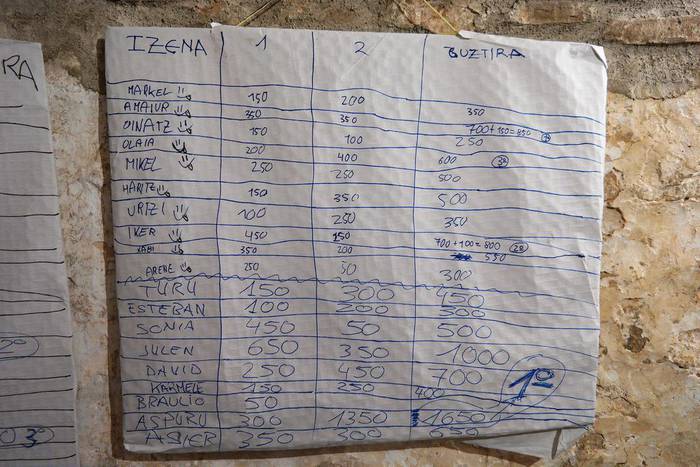 IZENA 1 2 BUZTIRA
MARKEL 150 200 350
AMAIUR 350 350 700+150=850
OINATZ 150 100 250
OLAIA 200 400 600
MIKEL 250 250 500
HARITZ 150 350 500
URTZI 100 250 350
IKER 450 150 700+100=800
XABI 350 200 550
ARENE 250 50 300
TURU 150 300 450
ESTEBAN 100 200 300
SONIA 450 50 500
JULEN 650 350 1000
DAVID 250 450 700
KARMELE 150 250 400 1º
BRAULIO 50
ASPURU 300 1350 1650
ASIER 350 300 650
RA
2º
3º